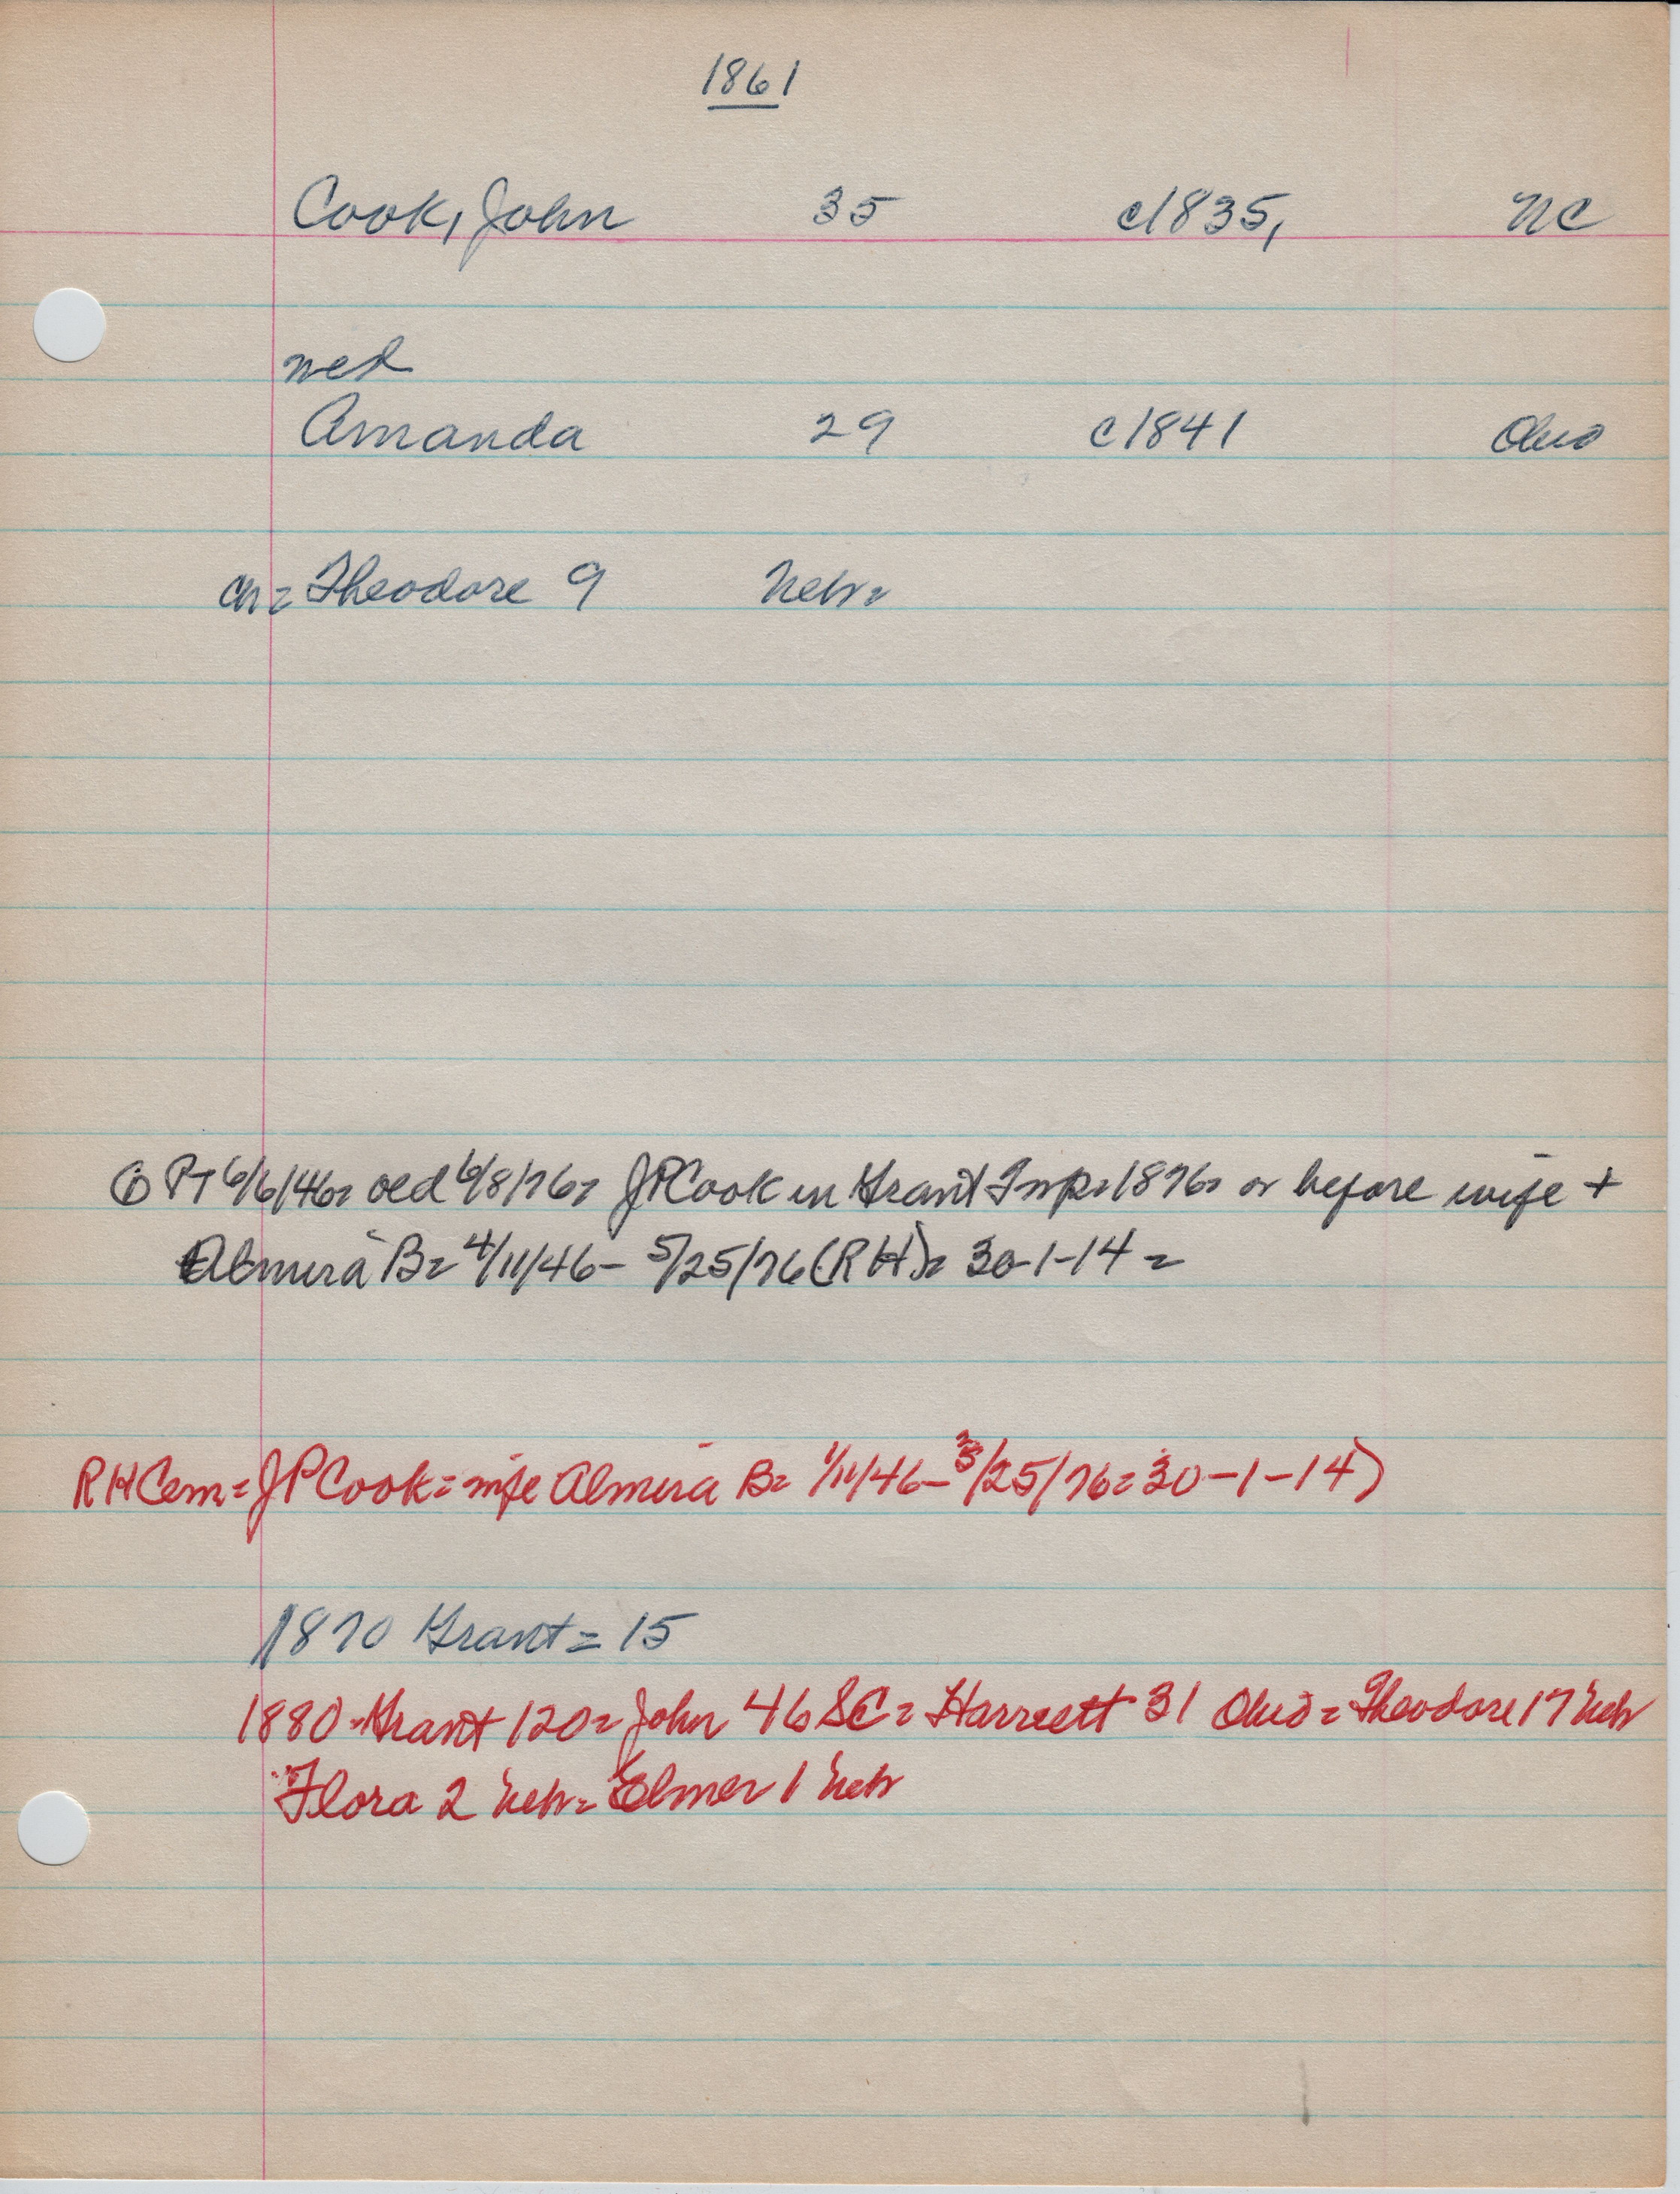 1861
Cook, John 35 c1835, NC
wed
Amanda 29 c1841 Ohio
ch= Theodore 9 Nebr=
① PT 6/6/46= old 6/8/76= JP Cook in Grant Twp=1876= or before wife +
Almira B= 4/11/46- 5/25/76 (RH)= 30-1-14=
RH Cem= JP Cook= wife Almira B= 4/11/46- 5/25/76=30-1-14)
1870 Grant=15
1880-Grant 120= John 46 SC= Harreett 31 Ohio= Theodore 17 Neb
Flora 2 Neb= Elmer 1 Neb